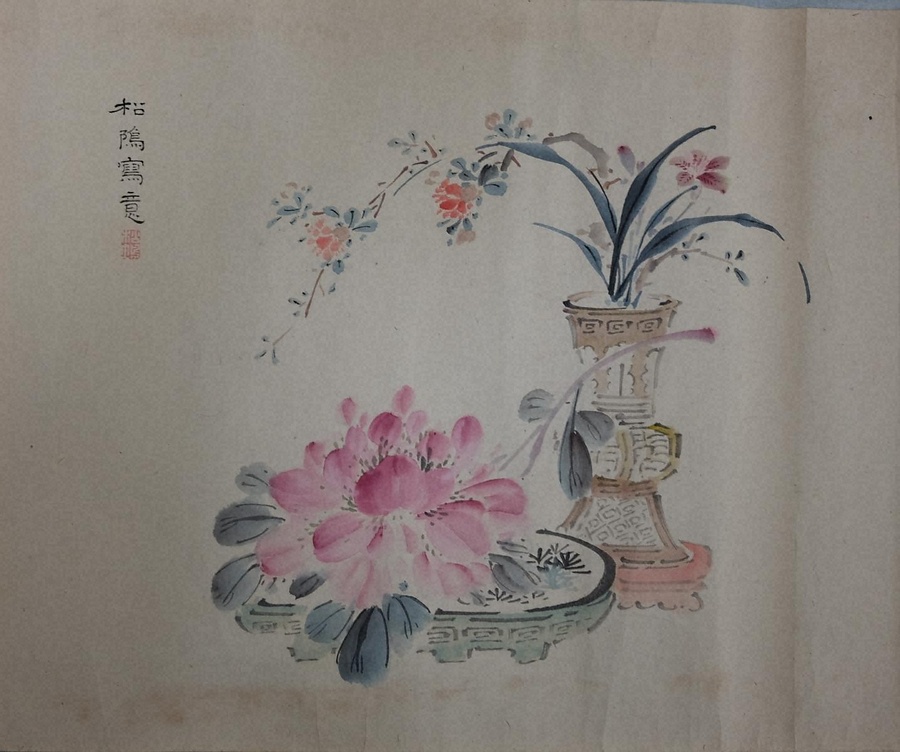 松隖寫意